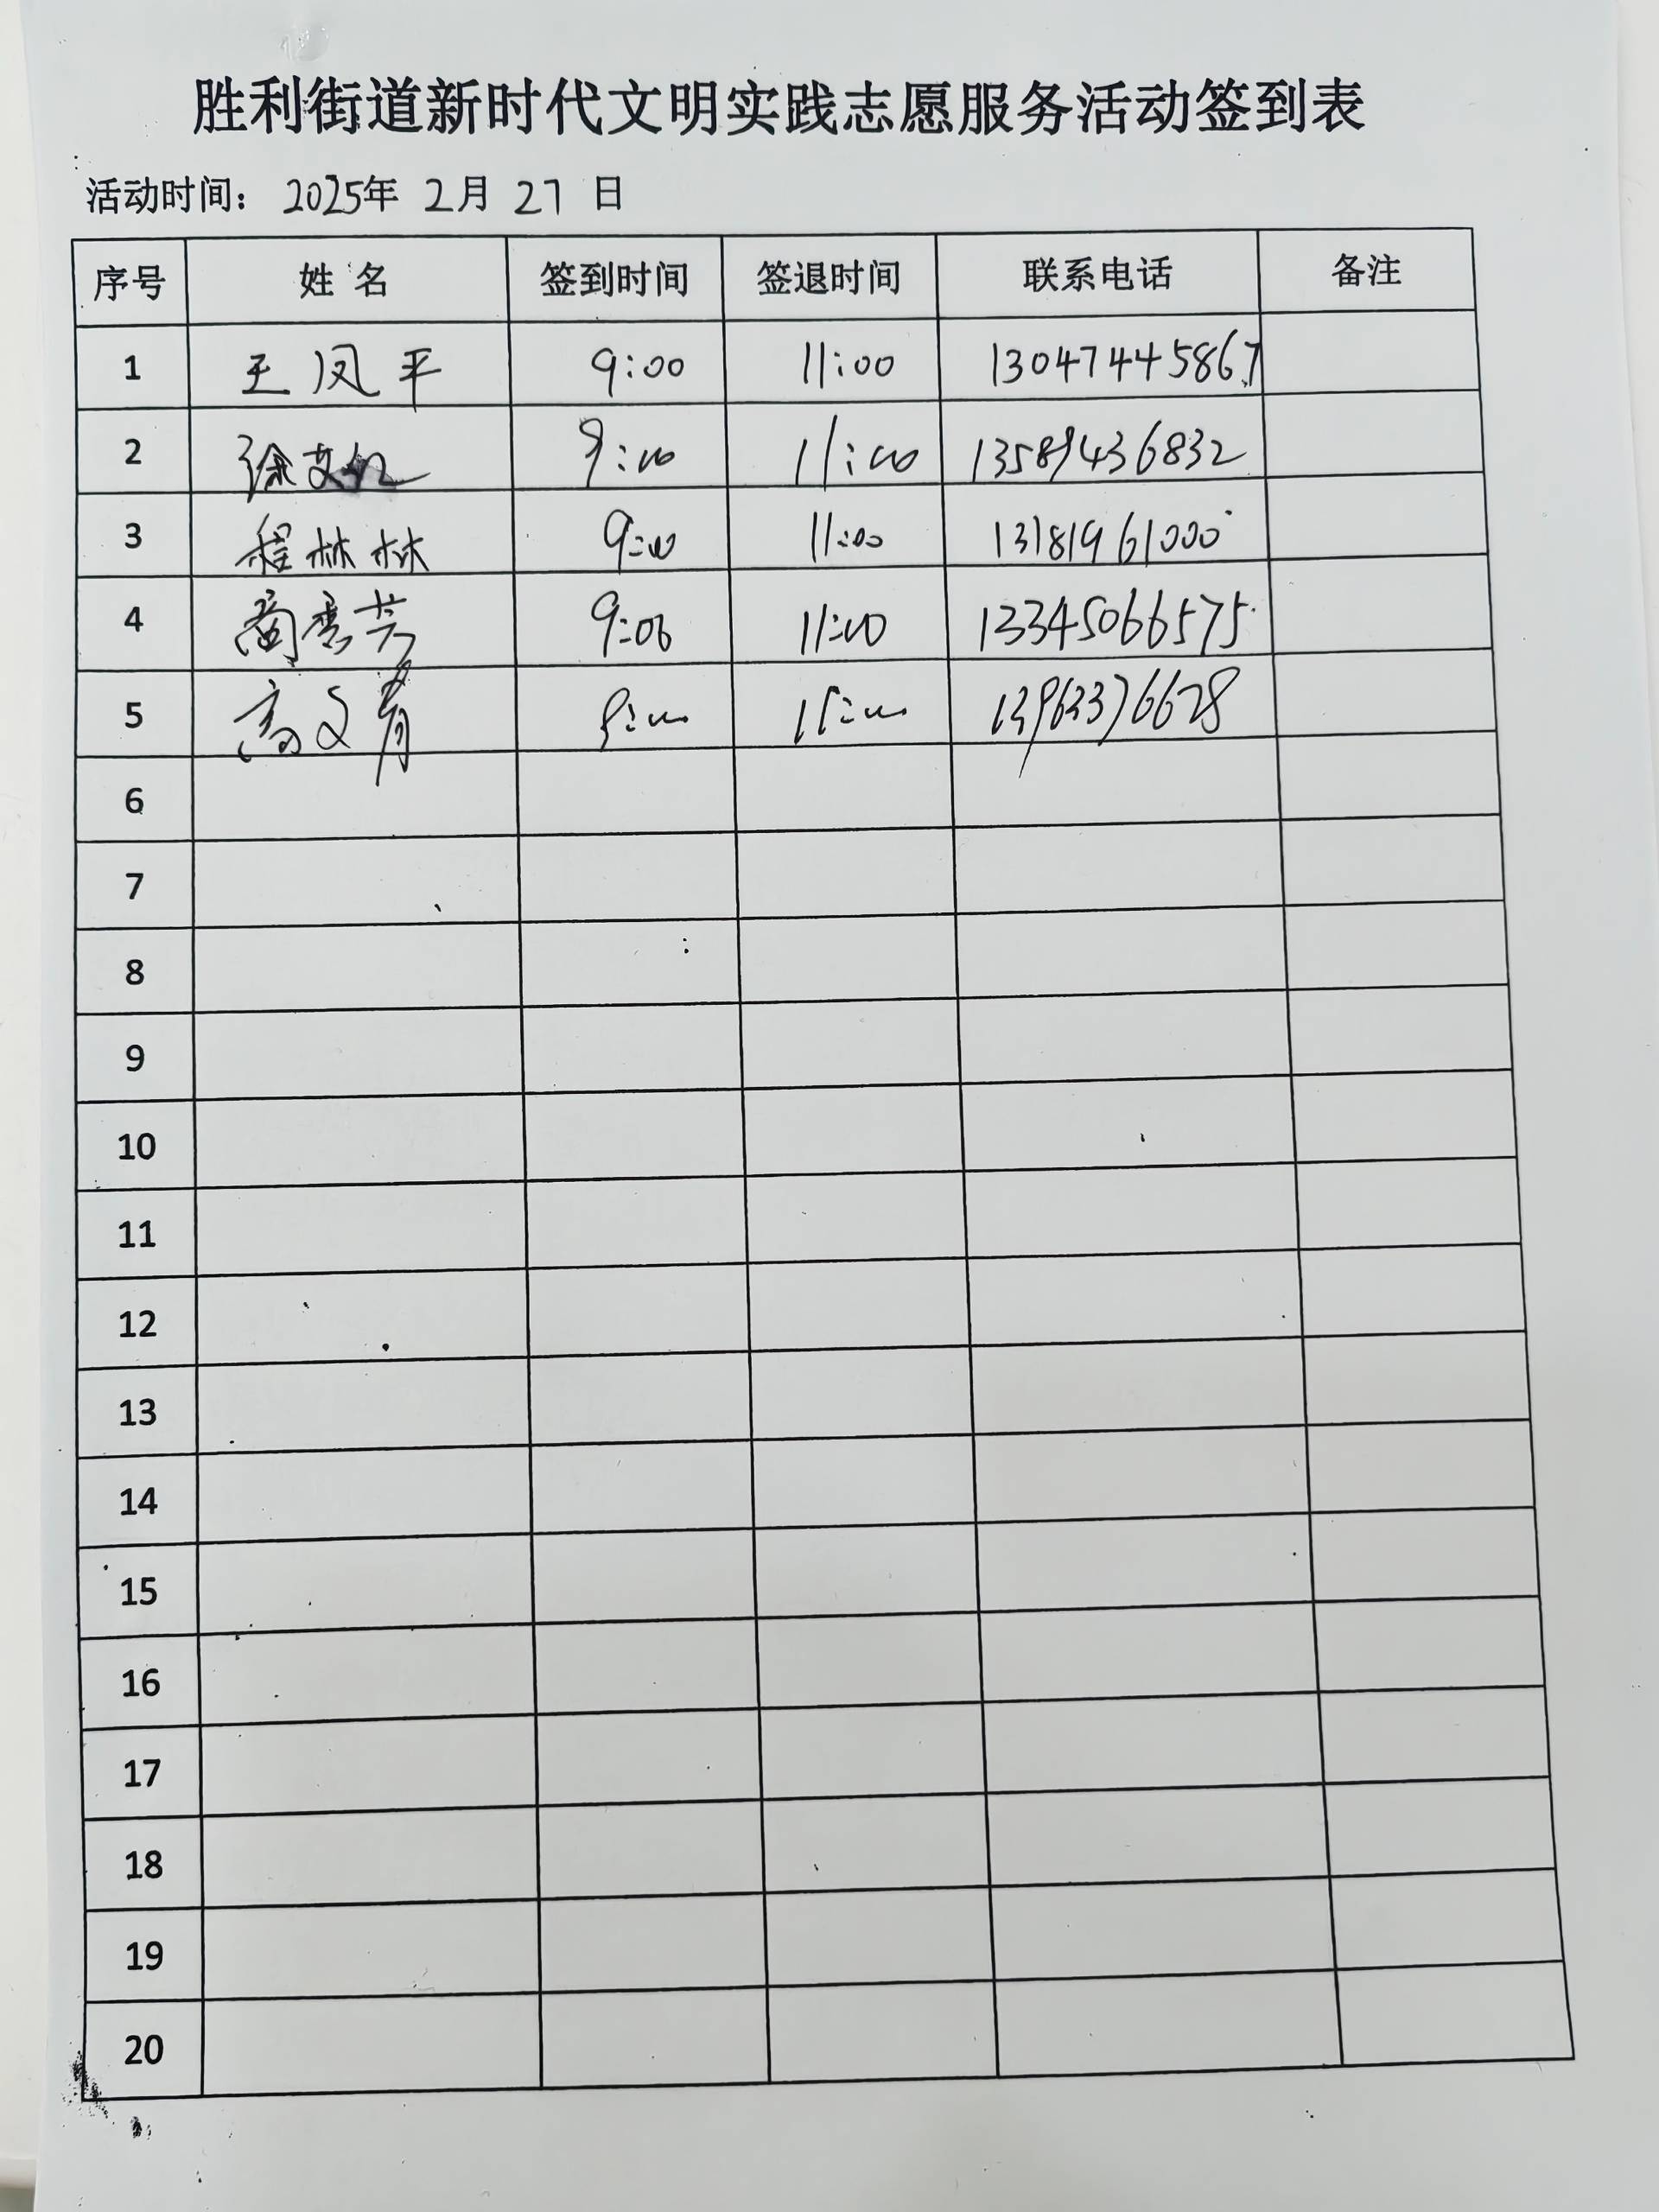 胜利街道新时代文明实践志愿服务活动签到表
活动时间: 2025年 2月 27 日
序号 姓名 签到时间 签退时间 联系电话 备注
1 王凤平 9:00 11:00 13047445867
2 徐艾 9:00 11:00 13589436832
3 程林林 9:00 11:00 13181961000
4 商秀芳 9:00 11:00 13345066575
5 高文青 9:00 11:00 13963376628
6
7
8
9
10
11
12
13
14
15
16
17
18
19
20